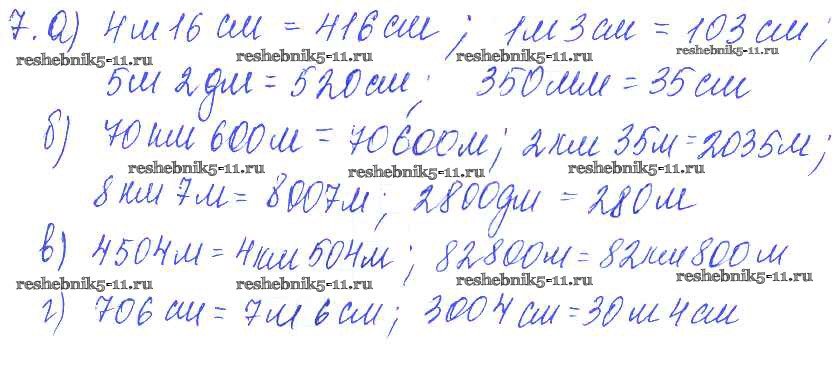 7. а) 4м 16 см = 416 см; 1м 3 см = 103 см;
reshebnik5-11.ru reshebnik5-11.ru reshebnik5-11.ru
5м 2 дм = 520 см; 350 мм = 35 см
б) 70 км 600 м = 70600 м; 2 км 35 м = 2035 м;
reshebnik5-11.ru reshebnik5-11.ru reshebnik5-11.ru
8 км 7 м = 8007 м; 2800 дм = 280 м
в) 4504 м = 4 км 504 м; 82800 м = 82 км 800 м
reshebnik5-11.ru reshebnik5-11.ru reshebnik5-11.ru
г) 706 см = 7 м 6 см; 3004 см = 30 м 4 см